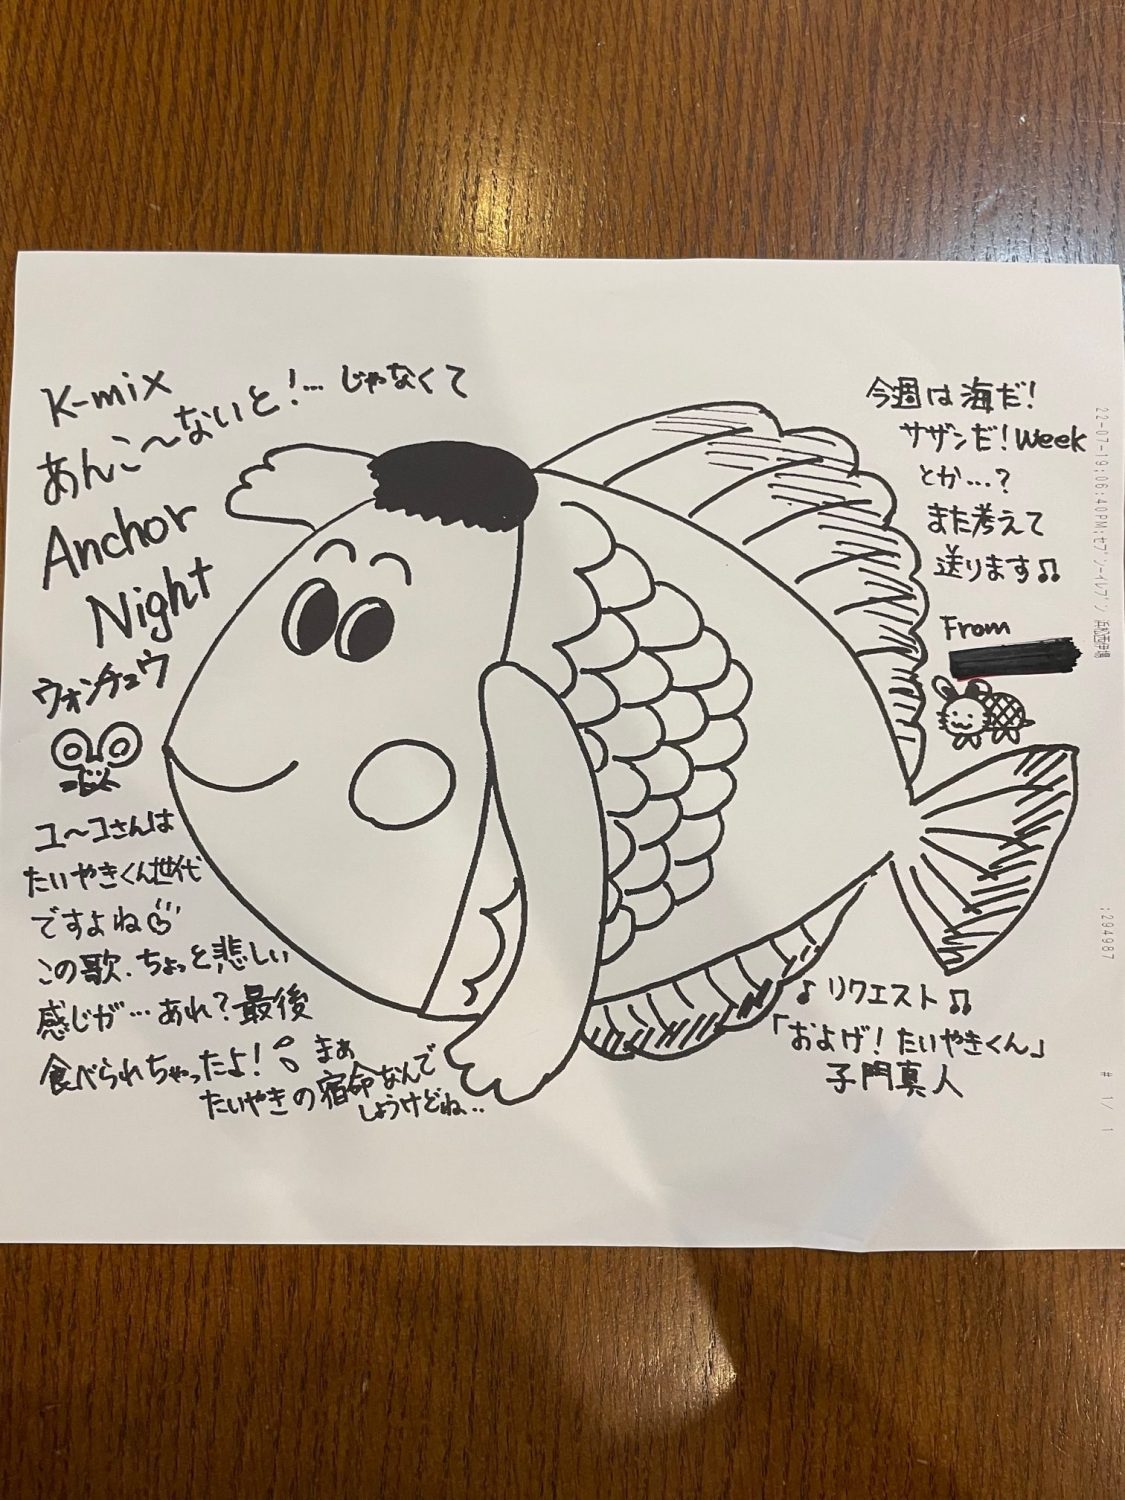 K-mix
あんこ〜ないと!…じゃなくて
Anchor
Night
ウォンチュウ
ユーコさんは
たいやきくん世代
ですよね
この歌、ちょっと悲しい
感じが…あれ?最後
食べられちゃったよ!
まぁ
たいやきの宿命なんで
しょうけどね..
今週は海だ!
サザンだ!Week
とか…?
また考えて
送ります♫
From
♪リクエスト♫
「およげ!たいやきくん」
子門真人
22-07-19;06:40PM;セブン-イレブン
;294987
# 1/ 1